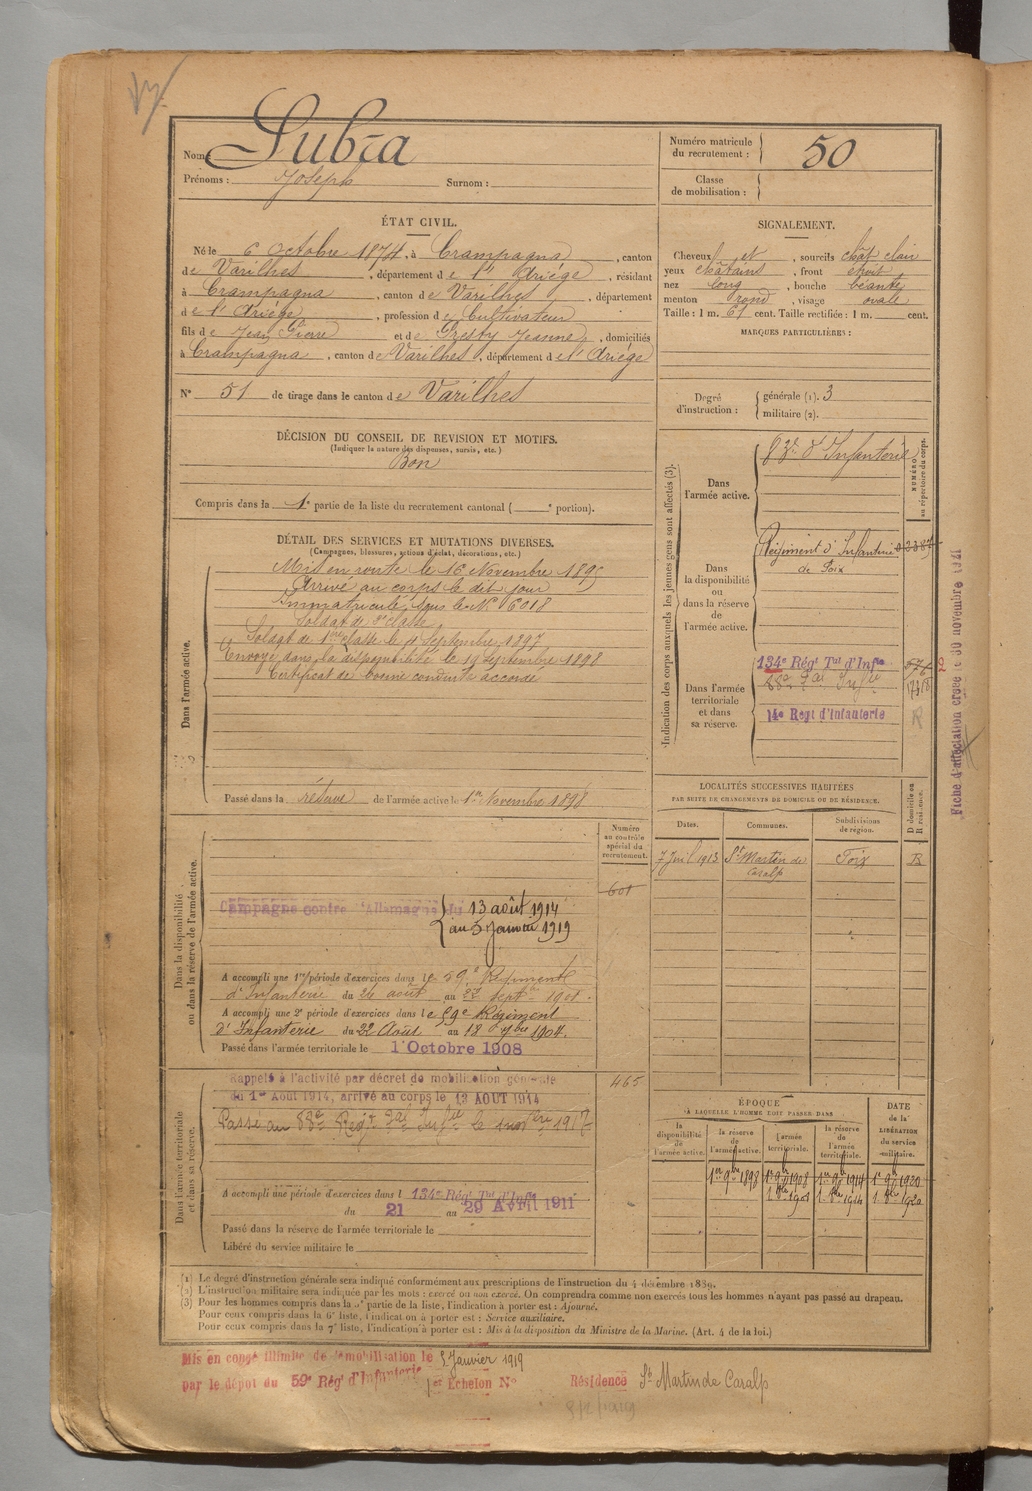 Nom : Lubra
Prénoms : Joseph Surnom :
Numéro matricule du recrutement : 50
Classe de mobilisation :
ÉTAT CIVIL.
Né le 6 octobre 1874, à Crampagna, canton
de Varilhes, département de l'Ariège, résidant
à Crampagna, canton de Varilhes, département
de l'Ariège, profession de Cultivateur
fils de Jean Pierre et de Jeanne, domiciliés
à Crampagna, canton de Varilhes, département de l'Ariège
N° 51 de tirage dans le canton de Varilhes
SIGNALEMENT.
Cheveux et, sourcils chât clair
yeux châtains, front étroit
nez long, bouche béante
menton rond, visage ovale
Taille : 1 m. 67 cent. Taille rectifiée : 1 m. cent.
MARQUES PARTICULIÈRES :
Degré d'instruction :
générale (1). 3
militaire (2).
DÉCISION DU CONSEIL DE REVISION ET MOTIFS.
(Indiquer la nature des dispenses, sursis, etc.)
Bon
Compris dans la 1e partie de la liste du recrutement cantonal ( e portion).
DÉTAIL DES SERVICES ET MUTATIONS DIVERSES.
(Campagnes, blessures, actions d'éclat, décorations, etc.)
Dans l'armée active.
Mis en route le 16 Novembre 1895
Arrivé au corps le dit jour
Immatriculé sous le N° 6018
Soldat de 2e classe
Soldat de 1ère classe le Septembre 1897
Envoyé dans la disponibilité le 19 Septembre 1898
Certificat de bonne conduite accordé
Passé dans la réserve de l'armée active le 1er Novembre 1898
Indication des corps auxquels les jeunes gens sont affectés (3).
NUMÉRO au répertoire du corps.
Dans l'armée active.
83e d'Infanterie
Dans la disponibilité ou dans la réserve de l'armée active.
Régiment d'Infanterie
de Foix
Dans l'armée territoriale et dans sa réserve.
134e Régt Tal d'Infie
88e Tal Infie
14e Regt d'Infanterie
R
Fiche d'affectation créée le 30 novembre 1921
LOCALITÉS SUCCESSIVES HABITÉES
PAR SUITE DE CHANGEMENTS DE DOMICILE OU DE RÉSIDENCE.
Dates. Communes. Subdivisions de région. D domicile ou R résidence.
7 Juil 1913 St Martin de Caralp Foix R
Dans la disponibilité ou dans la réserve de l'armée active.
Numéro au contrôle spécial du recrutement.
601
Campagne contre l'Allemagne du 13 août 1914
au 5 Janvier 1919
A accompli une 1re période d'exercices dans le 59e Régiment
d'Infanterie du 26 août au 22 Septbre 1901.
A accompli une 2e période d'exercices dans le 59e Régiment
d'Infanterie du 22 Août au 18 7bre 1904.
Passé dans l'armée territoriale le 1 Octobre 1908
Dans l'armée territoriale et dans sa réserve.
465
Rappelé à l'activité par décret de mobilisation générale
du 1er Août 1914, arrivé au corps le 13 AOUT 1914
Passé au 88e Régt Tal Infie le 1917
A accompli une période d'exercices dans l 134e Rég Tal d'Infie
du 21 au 29 Avril 1911
Passé dans la réserve de l'armée territoriale le
Libéré du service militaire le
ÉPOQUE
À LAQUELLE L'HOMME DOIT PASSER DANS
la disponibilité de l'armée active.
la réserve de l'armée active.
l'armée territoriale.
la réserve de l'armée territoriale.
DATE de la LIBÉRATION du service militaire.
1er 9bre 1898 1er 9bre 1908 1er 9bre 1914 1er 9bre 1920
(1) Le degré d'instruction générale sera indiqué conformément aux prescriptions de l'instruction du 4 décembre 1889.
(2) L'instruction militaire sera indiquée par les mots : exercé ou non exercé. On comprendra comme non exercés tous les hommes n'ayant pas passé au drapeau.
(3) Pour les hommes compris dans la 5e partie de la liste, l'indication à porter est : Ajourné.
Pour ceux compris dans la 6e liste, l'indication à porter est : Service auxiliaire.
Pour ceux compris dans la 7e liste, l'indication à porter est : Mis à la disposition du Ministre de la Marine. (Art. 4 de la loi.)
Mis en congé illimité de démobilisation le 5 Janvier 1919
par le dépôt du 59e Rég d'Infanterie 1er Echelon N° Résidence St Martin de Caralp